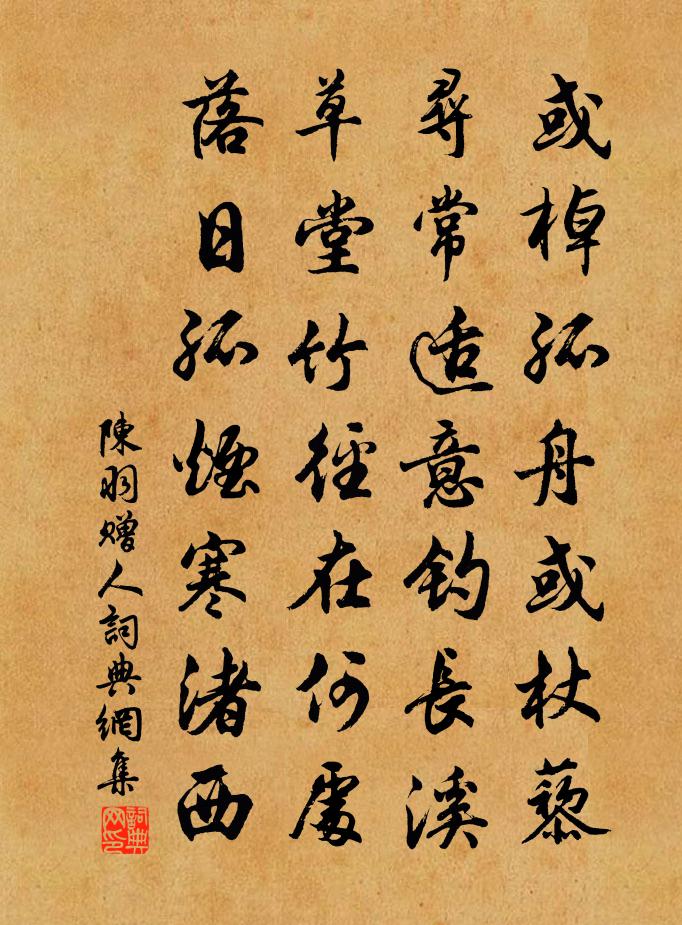 或棹孤舟或杖藜
尋常適意釣長溪
草堂竹徑在何處
落日孤煙寒渚西
陳羽贈人詞典網集
詞典网印